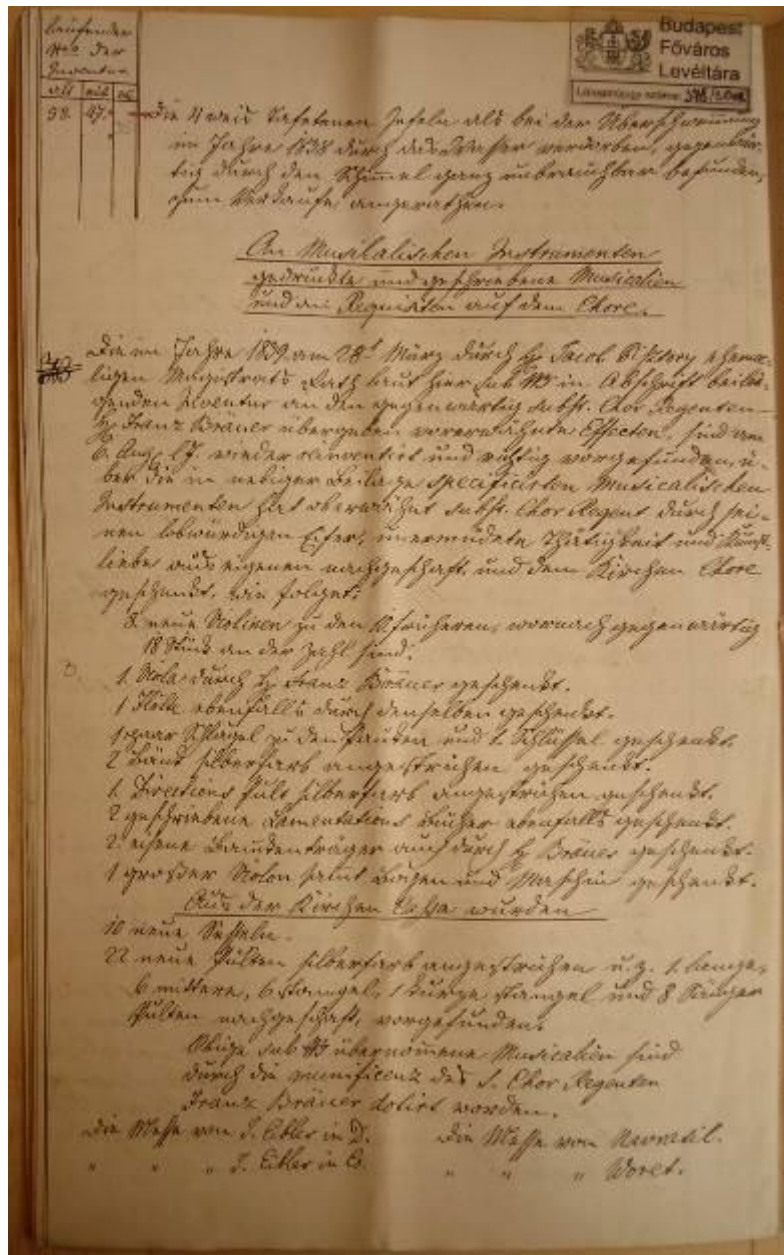 laufender
Nro der
Inventur
alt neu
98. 47.
Budapest
Főváros
Levéltára
Die 4 weis Tafetenen Tafeln als bei der Überschwemmung
im Jahre 1838 durch das Wasser verdorben, gegenwär-
tig durch den Schimmel ganz unbrauchbar befunden,
zum Verkaufe angerathen.
An Musikalischen Instrumenten
gedruckte und geschriebene Musicalien
und an Requisiten auf dem Chore.
Die im Jahre 1839 am 28t März durch H. Jacob ehema-
ligen Magistrats Rath laut hier sub in Abschrift beilie-
genden Inventur an den gegenwärtig subst. Chor Regenten
H. Franz Bräuer übergeben vorerwähnte Effecten, sind am
6. Aug. l.J. wieder und richtig vorgefunden, ü-
ber die in nebiger Beilage specificirten Musicalischen
Instrumenten hat oberwähnt subst. Chor Regent durch sei-
nen lobwürdigen Eifer, unermüdete Thätigkeit und Kunst-
liebe aus eigenen nachgeschaft, und dem Kirchen Chore
geschenkt, wie folget:
8 neue Violinen zu den 10 früheren, wornach gegenwärtig
18 Stück an der Zahl sind.
1. Viola durch H. Franz Bräuer geschenkt.
1 Flöte ebenfalls durch denselben geschenkt.
1 paar Schlägel zu den Pauken und 1. Schlüssel geschenkt.
2 Bänk silberfarb angestrichen geschenkt.
1. Directions Pult silberfarb angestrichen geschenkt.
2 geschriebene Lamentations Bücher ebenfalls geschenkt.
2. eiserne auch durch H. Bräuer geschenkt.
1 großer Violon samt Bogen und Maschin geschenkt.
Aus der Kirchen Cassa wurden
10 neue Sesseln.
22 neue Pulten silberfarb angestrichen u.z. 1. lange,
6 mittere, 6 Stangel, 1 kurze Stangel und 8 Sänger
Pulten nachgeschaft, vorgefunden.
Obige sub übernommene Musicalien sind
durch die munificenz des s. Chor Regenten
Franz Bräuer dotirt worden.
Die Messe von J. Eibler in D. Die Messe von Navratil.
" " " J. Eibler in Es. " " " Woret.